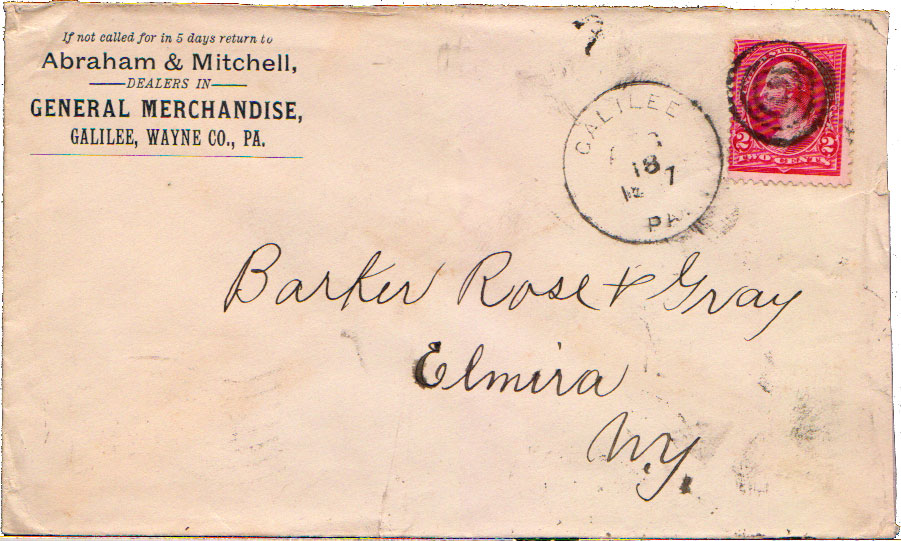 If not called for in 5 days return to
Abraham & Mitchell,
DEALERS IN
GENERAL MERCHANDISE,
GALILEE, WAYNE CO., PA.
GALILEE
18
PA.
2 2
TWO CENTS
Barker Rose & Gray
Elmira
N.Y.